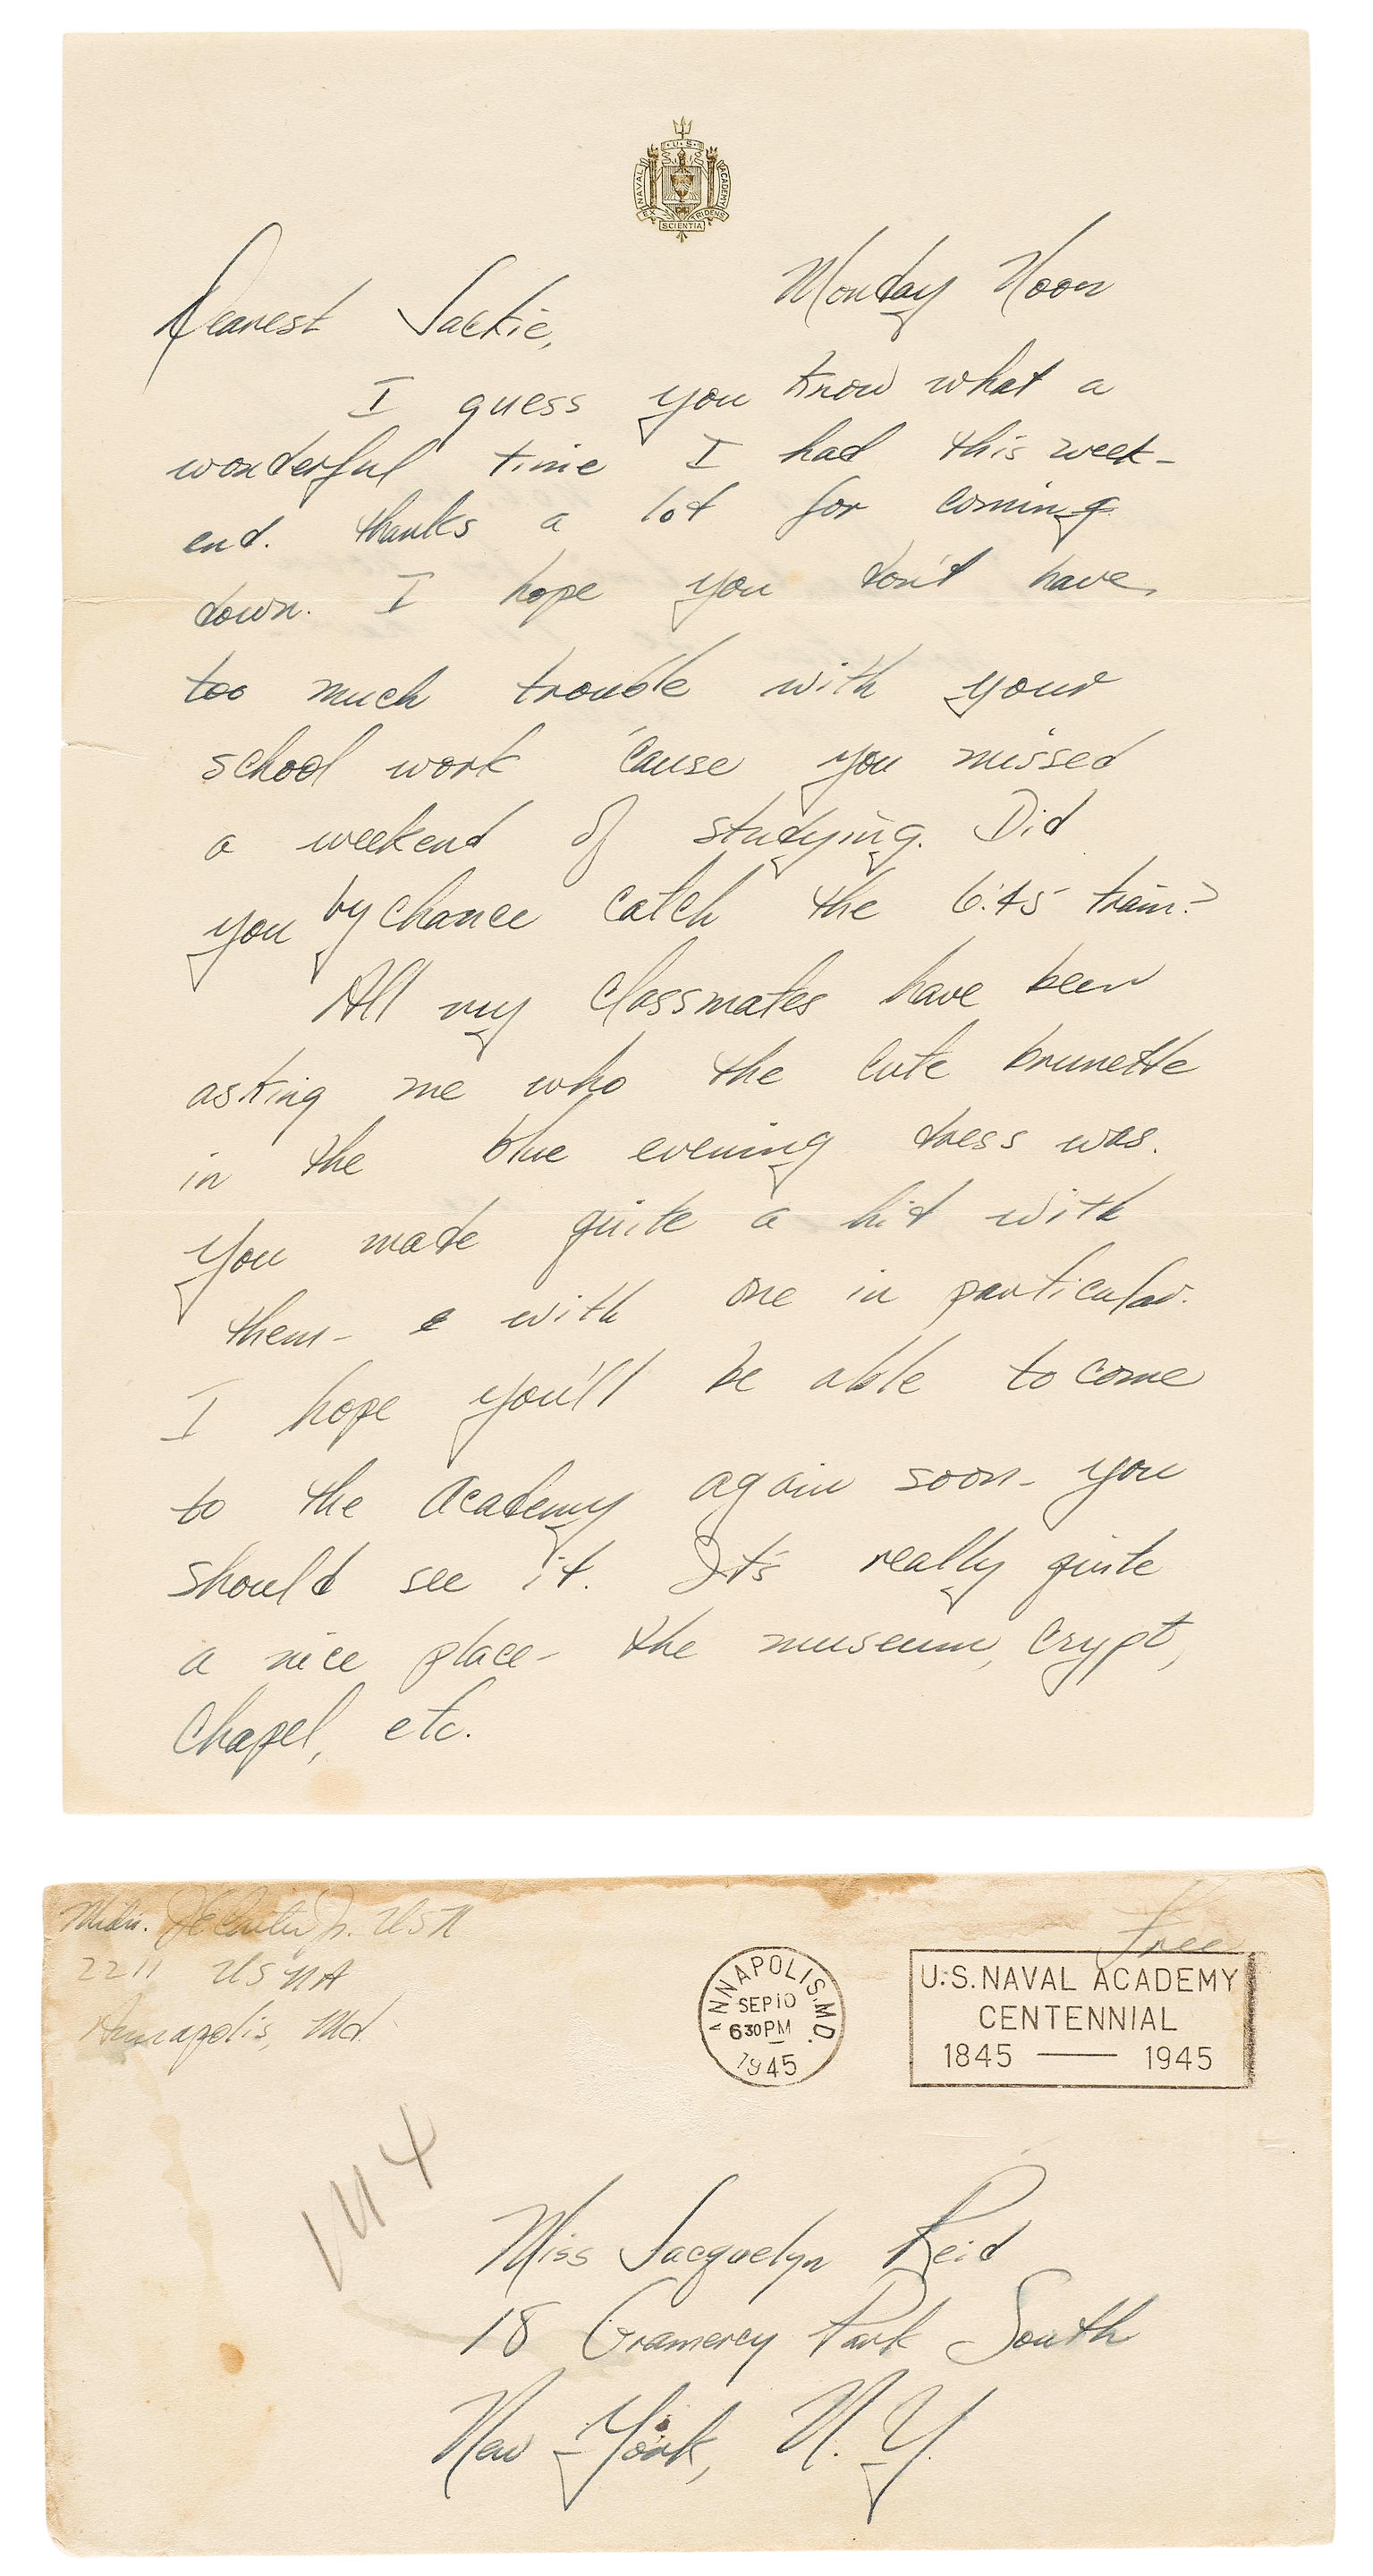 U·S
NAVAL ACADEMY
EX SCIENTIA TRIDENS
Monday Noon
Dearest Jackie,
I guess you know what a
wonderful time I had this week-
end. thanks a lot for coming
down. I hope you don't have
too much trouble with your
school work 'cause you missed
a weekend of studying. Did
you by chance catch the 6:45 train?
All my classmates have been
asking me who the cute brunette
in the blue evening dress was.
You made quite a hit with
them - & with one in particular.
I hope you'll be able to come
to the Academy again soon - you
should see it. It's really quite
a nice place - the museum, crypt,
Chapel, etc.
Midn. J E Carter Jr. USN
2211 USNA
Annapolis, Md.
Free
ANNAPOLIS, MD.
SEP 10
630 PM
1945
U.S. NAVAL ACADEMY
CENTENNIAL
1845 — 1945
Miss Jacquelyn Reid
18 Gramercy Park South
New York, N.Y.